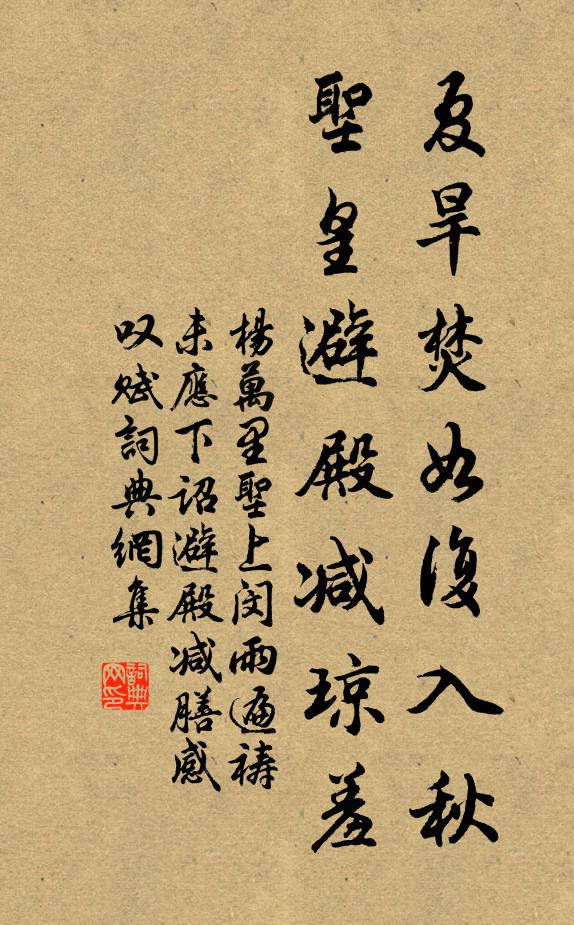 夏旱焚如復入秋
聖皇避殿減瓊羞
楊萬里聖上閔雨遍禱
未應下詔避殿減膳感
叹賦詞典網集
詞典
网印